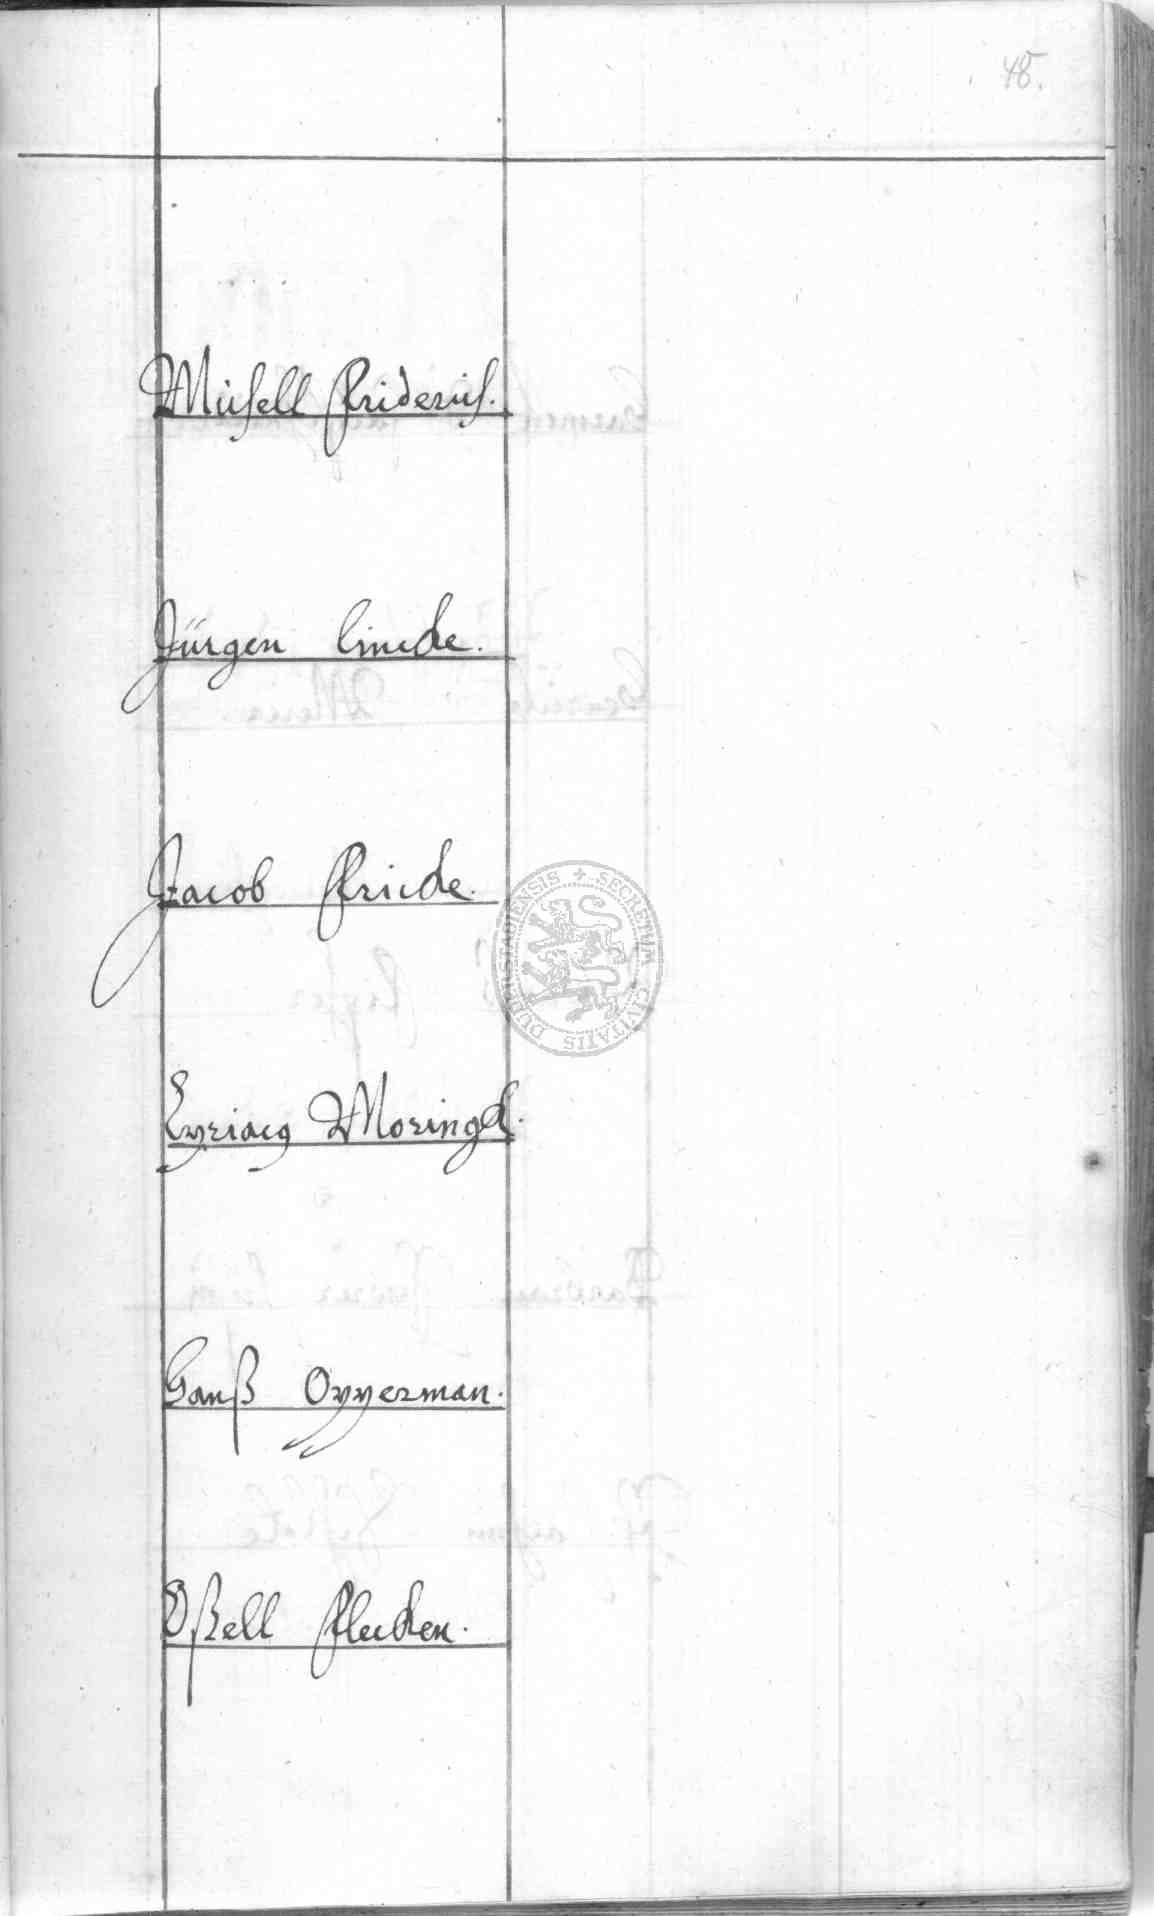 48.
Michell Friderich.
Jürgen Lincke.
Jacob Fricke.
SECRETUM CIVITATIS DUDERSTADIENSIS
Cyriacg Moringk.
Hanß Opperman.
Oßell Flecken.